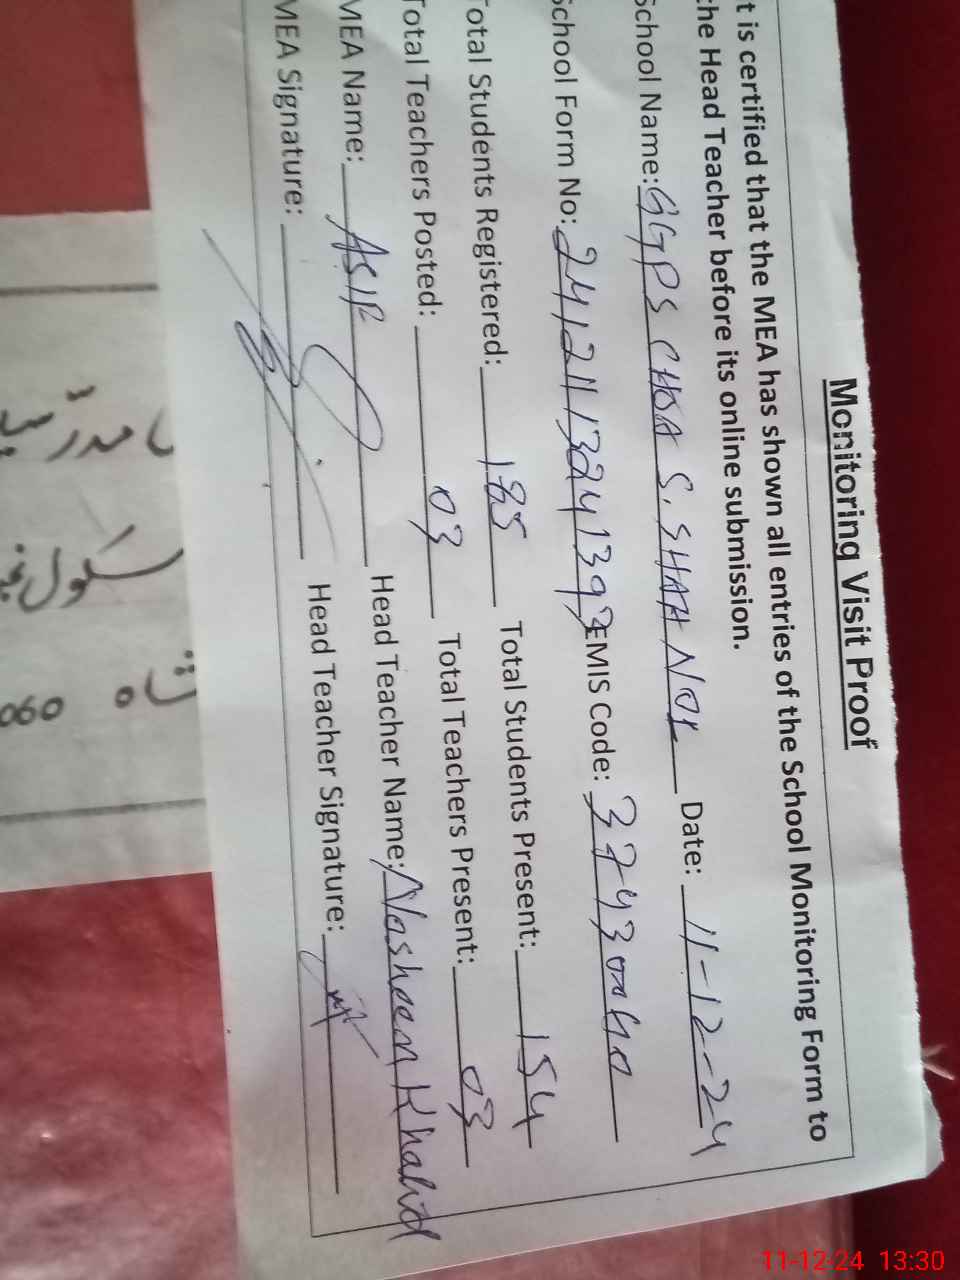 Monitoring Visit Proof
t is certified that the MEA has shown all entries of the School Monitoring Form to
he Head Teacher before its online submission.
School Name: GGPS CHAA S. SHAH NOR Date: 11-12-24
School Form No: EMIS Code: 37430040
Total Students Registered: 185 Total Students Present: 154
Total Teachers Posted: 03 Total Teachers Present: 03
MEA Name: ASIF Head Teacher Name: Nasheen Khalid
MEA Signature: Head Teacher Signature:
11-12-24 13:30